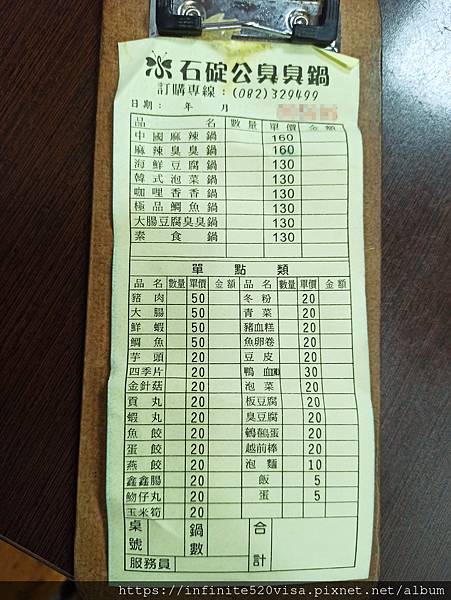 石碇公臭臭鍋
訂購專線：(082)329499
日期： 年 月
品名 數量 單價 金額
中國麻辣鍋 160
麻辣臭臭鍋 160
海鮮豆腐鍋 130
韓式泡菜鍋 130
咖哩香香鍋 130
極品鯛魚鍋 130
大腸豆腐臭臭鍋 130
素食鍋 130
單點類
品名 數量 單價 金額 品名 數量 單價 金額
豬肉 50 冬粉 20
大腸 50 青菜 20
鮮蝦 50 豬血糕 20
鯛魚 50 魚卵卷 20
芋頭 20 豆皮 20
四季片 20 鴨血 30
金針菇 20 泡菜 20
貢丸 20 板豆腐 20
蝦丸 20 臭豆腐 20
魚餃 20 鵪鶉蛋 20
蛋餃 20 越前棒 20
燕餃 20 泡麵 10
鑫鑫腸 20 飯 5
魩仔丸 20 蛋 5
玉米筍 20
桌號 鍋數 合計
服務員
https://infinite520visa.pixnet.net/album